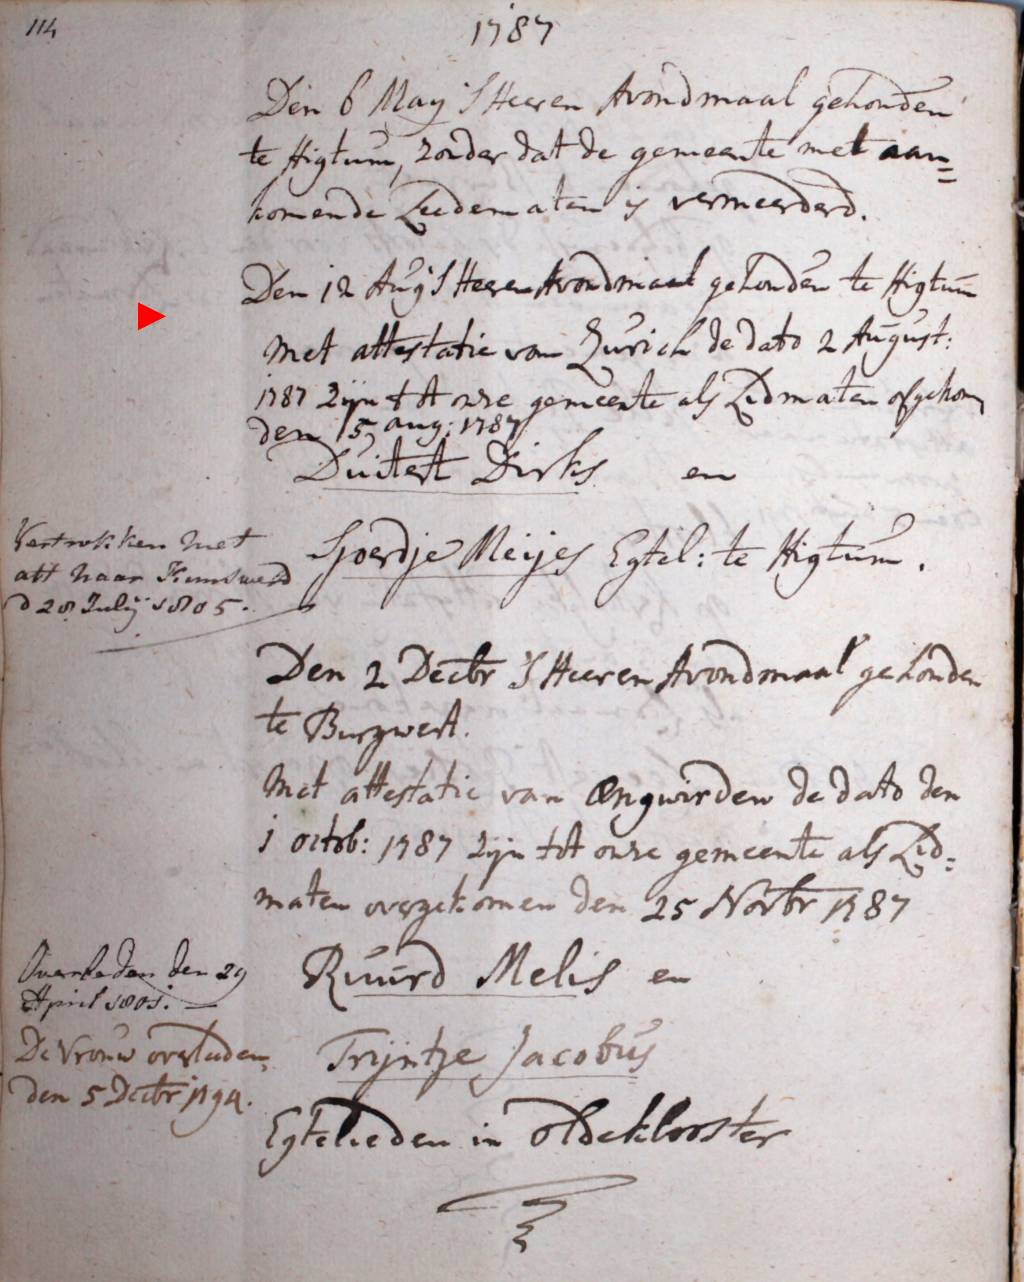 114
1787
Den 6 May 'S Heeren Avondmaal gehouden
te Higtum, zonder dat de gemeente met aan=
komende Leedematen is vermeerderd.
Den 12 Aug 'S Heeren Avondmaal gehouden te Higtum
Met attestatie van Zurich de dato 2 August:
1787 zijn tot onze gemeente als Ledmaten
den 5 aug: 1787
Duitett Dirks en
Sjoerdje Meijes Egtel: te Higtum.
Vertrokken met
att naar Kimswerd
d 28 Julij 1805.
Den 2 Decbr 'S Heeren Avondmaal gehouden
te Burgwert.
Met attestatie van Ængwirden de dato den
1 octob: 1787 zijn tot onze gemeente als Led=
maten overgekomen den 25 Novbr 1787
Ruurd Melis en
Overleden den 29
April 1801.
Trijntje Jacobus
De Vrouw overleden
den 5 Decbr 1794.
Egtelieden in Oldeklooster